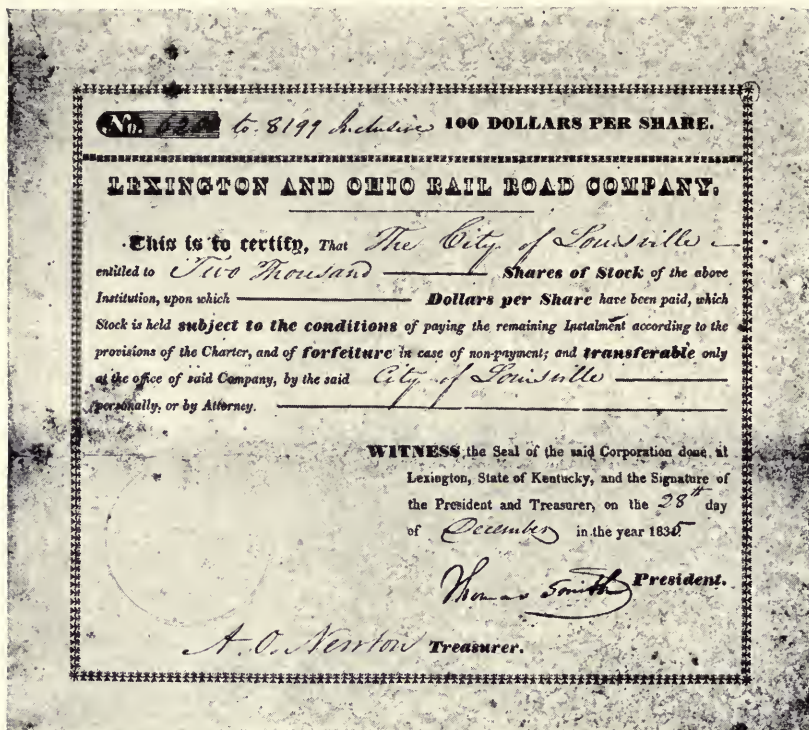 No. 620 to 8199 Inclusive 100 DOLLARS PER SHARE.
LEXINGTON AND OHIO RAIL ROAD COMPANY.
This is to certify, That The City of Louisville
entitled to Two Thousand Shares of Stock of the above
Institution, upon which Dollars per Share have been paid, which
Stock is held subject to the conditions of paying the remaining Instalment according to the
provisions of the Charter, and of forfeiture in case of non-payment; and transferable only
at the office of said Company, by the said City of Louisville
personally, or by Attorney.
WITNESS the Seal of the said Corporation done at
Lexington, State of Kentucky, and the Signature of
the President and Treasurer, on the 28th day
of December in the year 1835
Thomas Smith President.
A. O. Newton Treasurer.